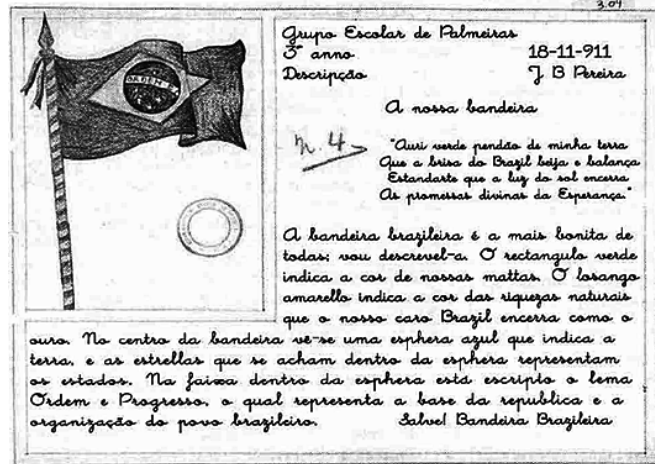 3.09
Grupo Escolar de Palmeiras
3º anno 18-11-911
Descripção J. B Pereira
A nossa bandeira
n. 4
"Auri verde pendão de minha terra
Que a brisa do Brazil beija e balança
Estandarte que a luz do sol encerra
As promessas divinas da Esperança."
ORDEM E
A bandeira brazileira é a mais bonita de
todas; vou descrevel-a. O rectangulo verde
indica a cor de nossas mattas. O losango
amarello indica a cor das riquezas naturais
que o nosso caro Brazil encerra como o
ouro. No centro da bandeira vê-se uma esphera azul que indica a
terra, e as estrellas que se acham dentro da esphera representam
os estados. Na faixa dentro da esphera está escripto o lema
Ordem e Progresso, o qual representa a base da republica e a
organização do povo brazileiro. Salve! Bandeira Brazileira